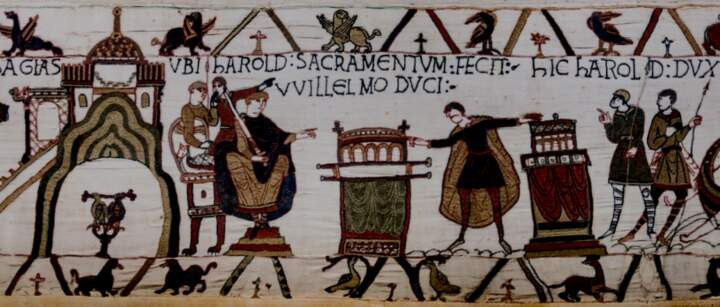 AGIAS UBI hAROLD: SACRAMENTUM: FECIT:- hIC hAROLD: DUX
VVILLELMO DUCI:-